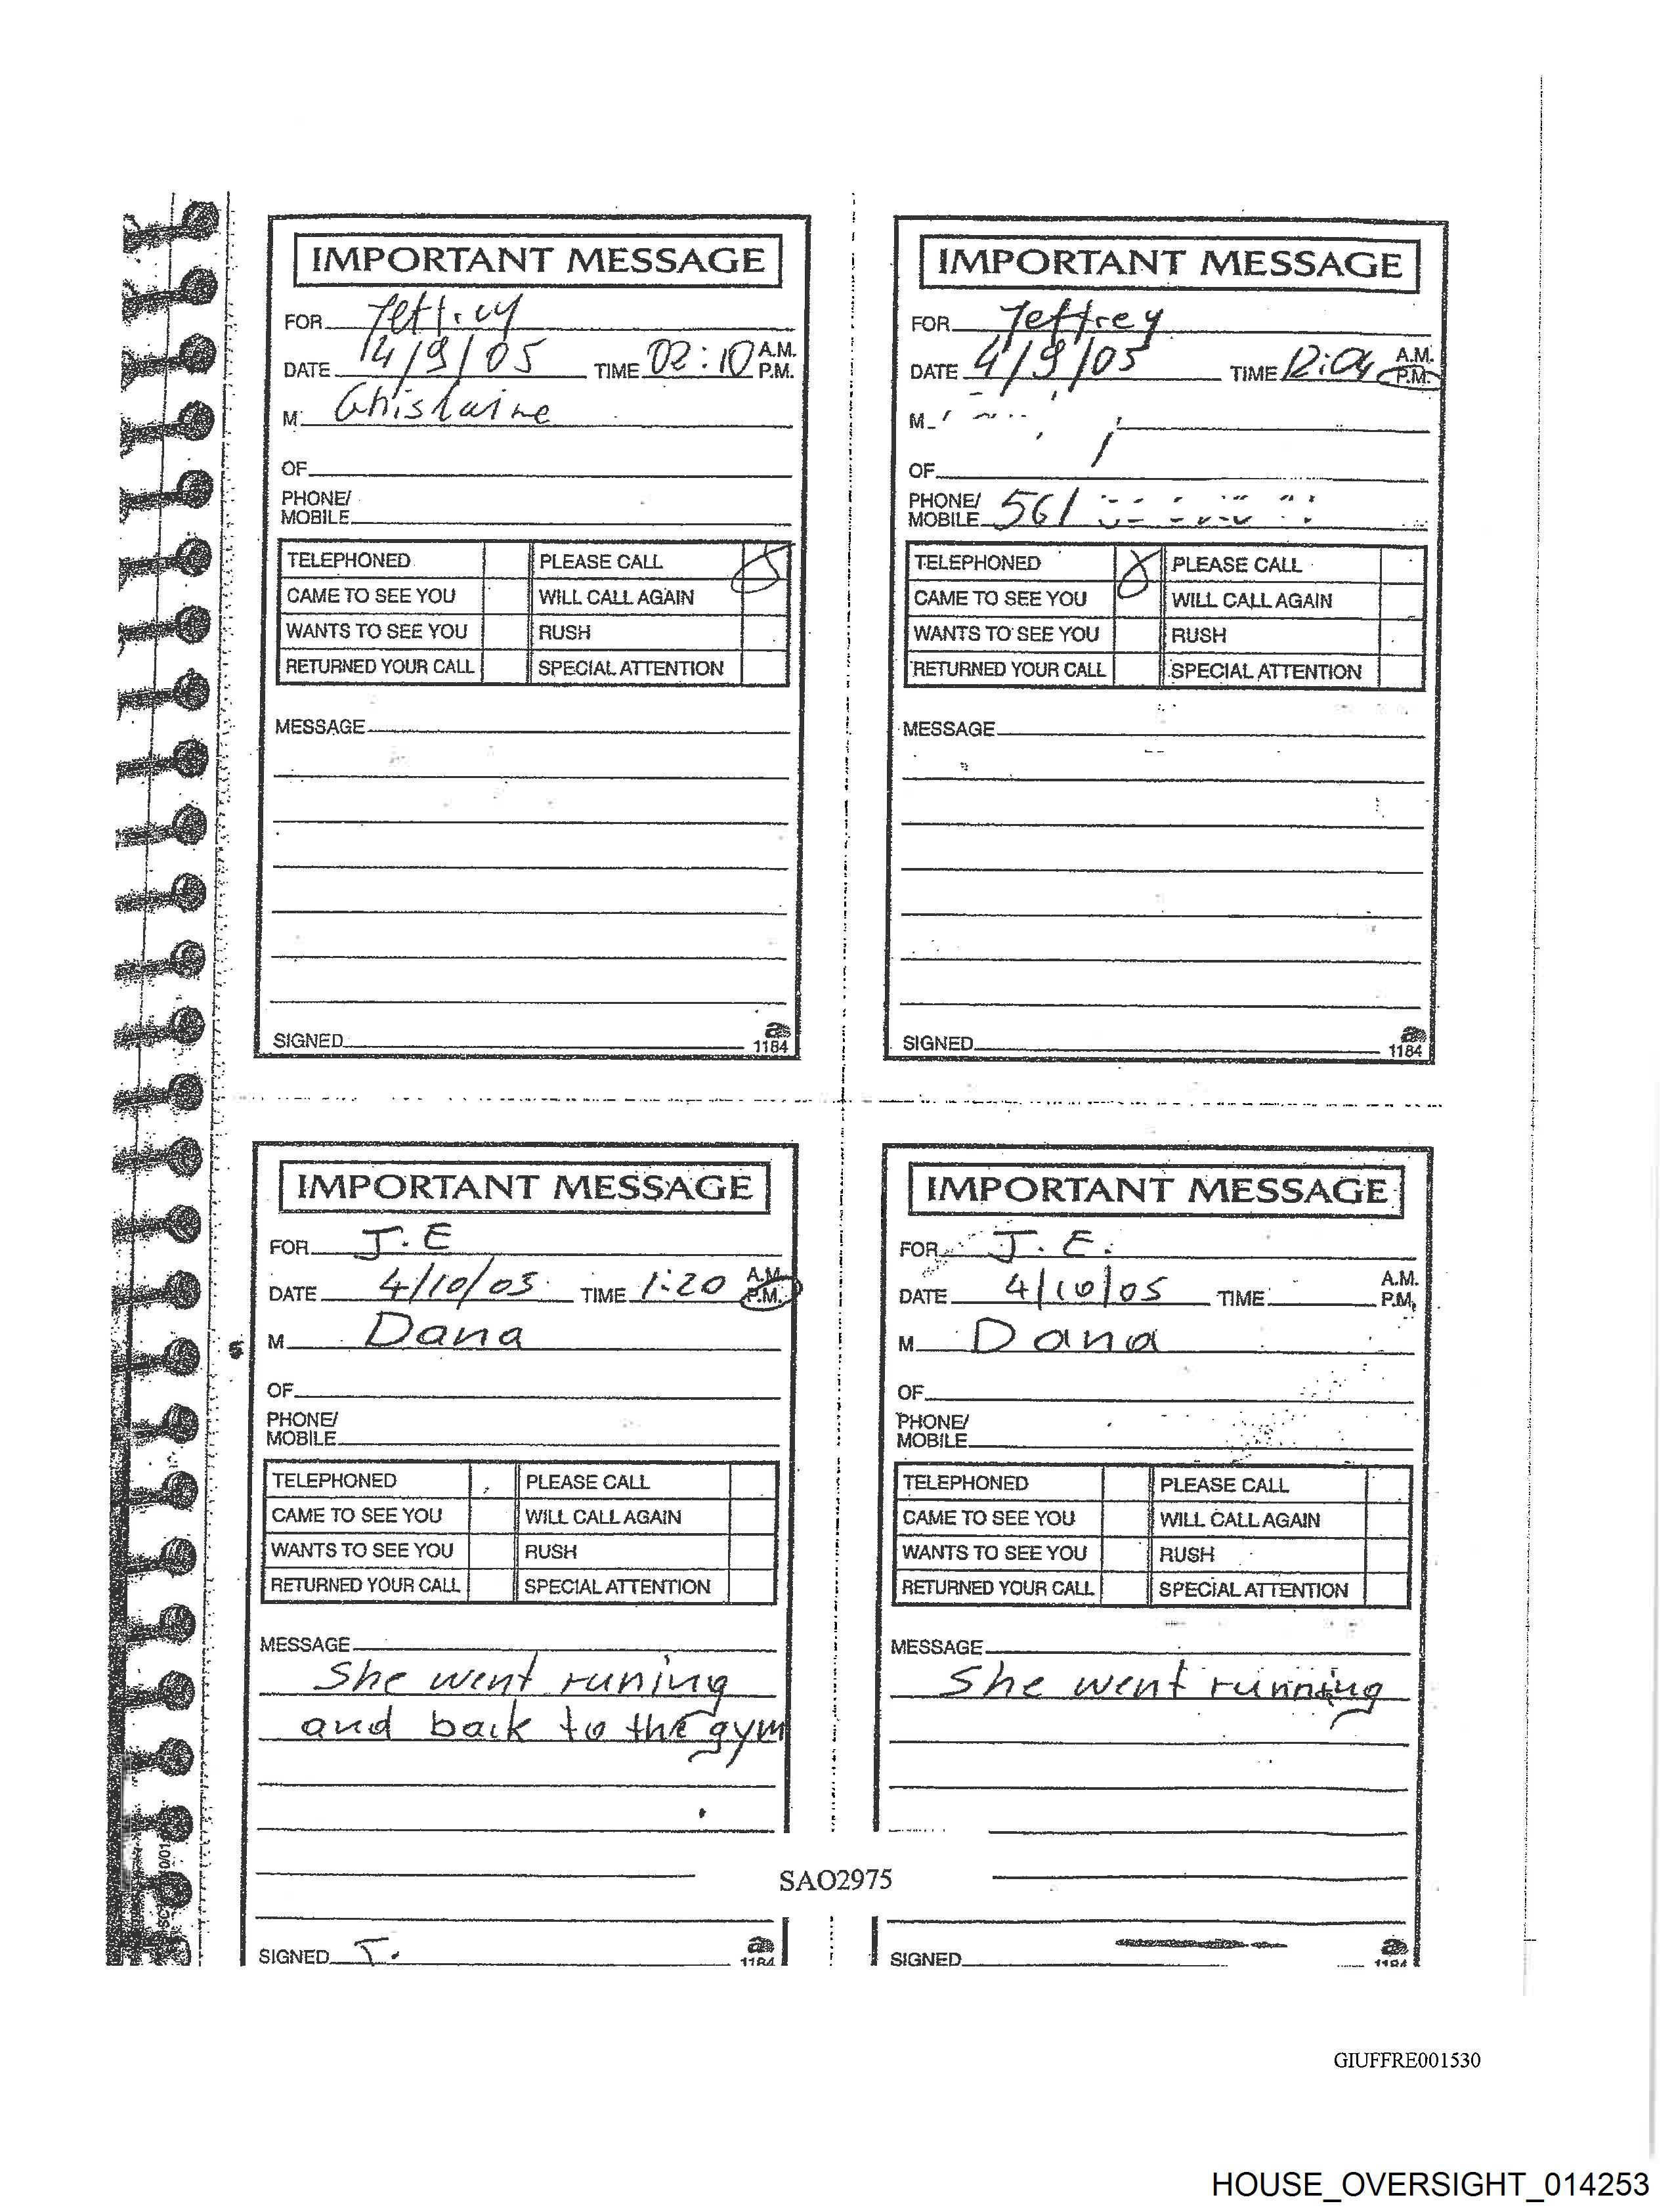 IMPORTANT MESSAGE
FOR Jeffrey
DATE 4/9/05 TIME 02:10 A.M. P.M.
M Ghislaine
OF
PHONE/
MOBILE
TELEPHONED PLEASE CALL
CAME TO SEE YOU WILL CALL AGAIN
WANTS TO SEE YOU RUSH
RETURNED YOUR CALL SPECIAL ATTENTION
MESSAGE
SIGNED
1184
IMPORTANT MESSAGE
FOR Jeffrey
DATE 4/9/05 TIME 12:04 A.M. P.M.
M
OF
PHONE/
MOBILE 561
TELEPHONED PLEASE CALL
CAME TO SEE YOU WILL CALL AGAIN
WANTS TO SEE YOU RUSH
RETURNED YOUR CALL SPECIAL ATTENTION
MESSAGE
SIGNED
1184
IMPORTANT MESSAGE
FOR J.E
DATE 4/10/05 TIME 1:20 A.M. P.M.
M Dana
OF
PHONE/
MOBILE
TELEPHONED PLEASE CALL
CAME TO SEE YOU WILL CALL AGAIN
WANTS TO SEE YOU RUSH
RETURNED YOUR CALL SPECIAL ATTENTION
MESSAGE
She went runing
and back to the gym
SIGNED J.
1184
IMPORTANT MESSAGE
FOR J.E.
DATE 4/10/05 TIME A.M. P.M.
M Dana
OF
PHONE/
MOBILE
TELEPHONED PLEASE CALL
CAME TO SEE YOU WILL CALL AGAIN
WANTS TO SEE YOU RUSH
RETURNED YOUR CALL SPECIAL ATTENTION
MESSAGE
She went running
SIGNED
1184
SAO2975
GIUFFRE001530
HOUSE_OVERSIGHT_014253